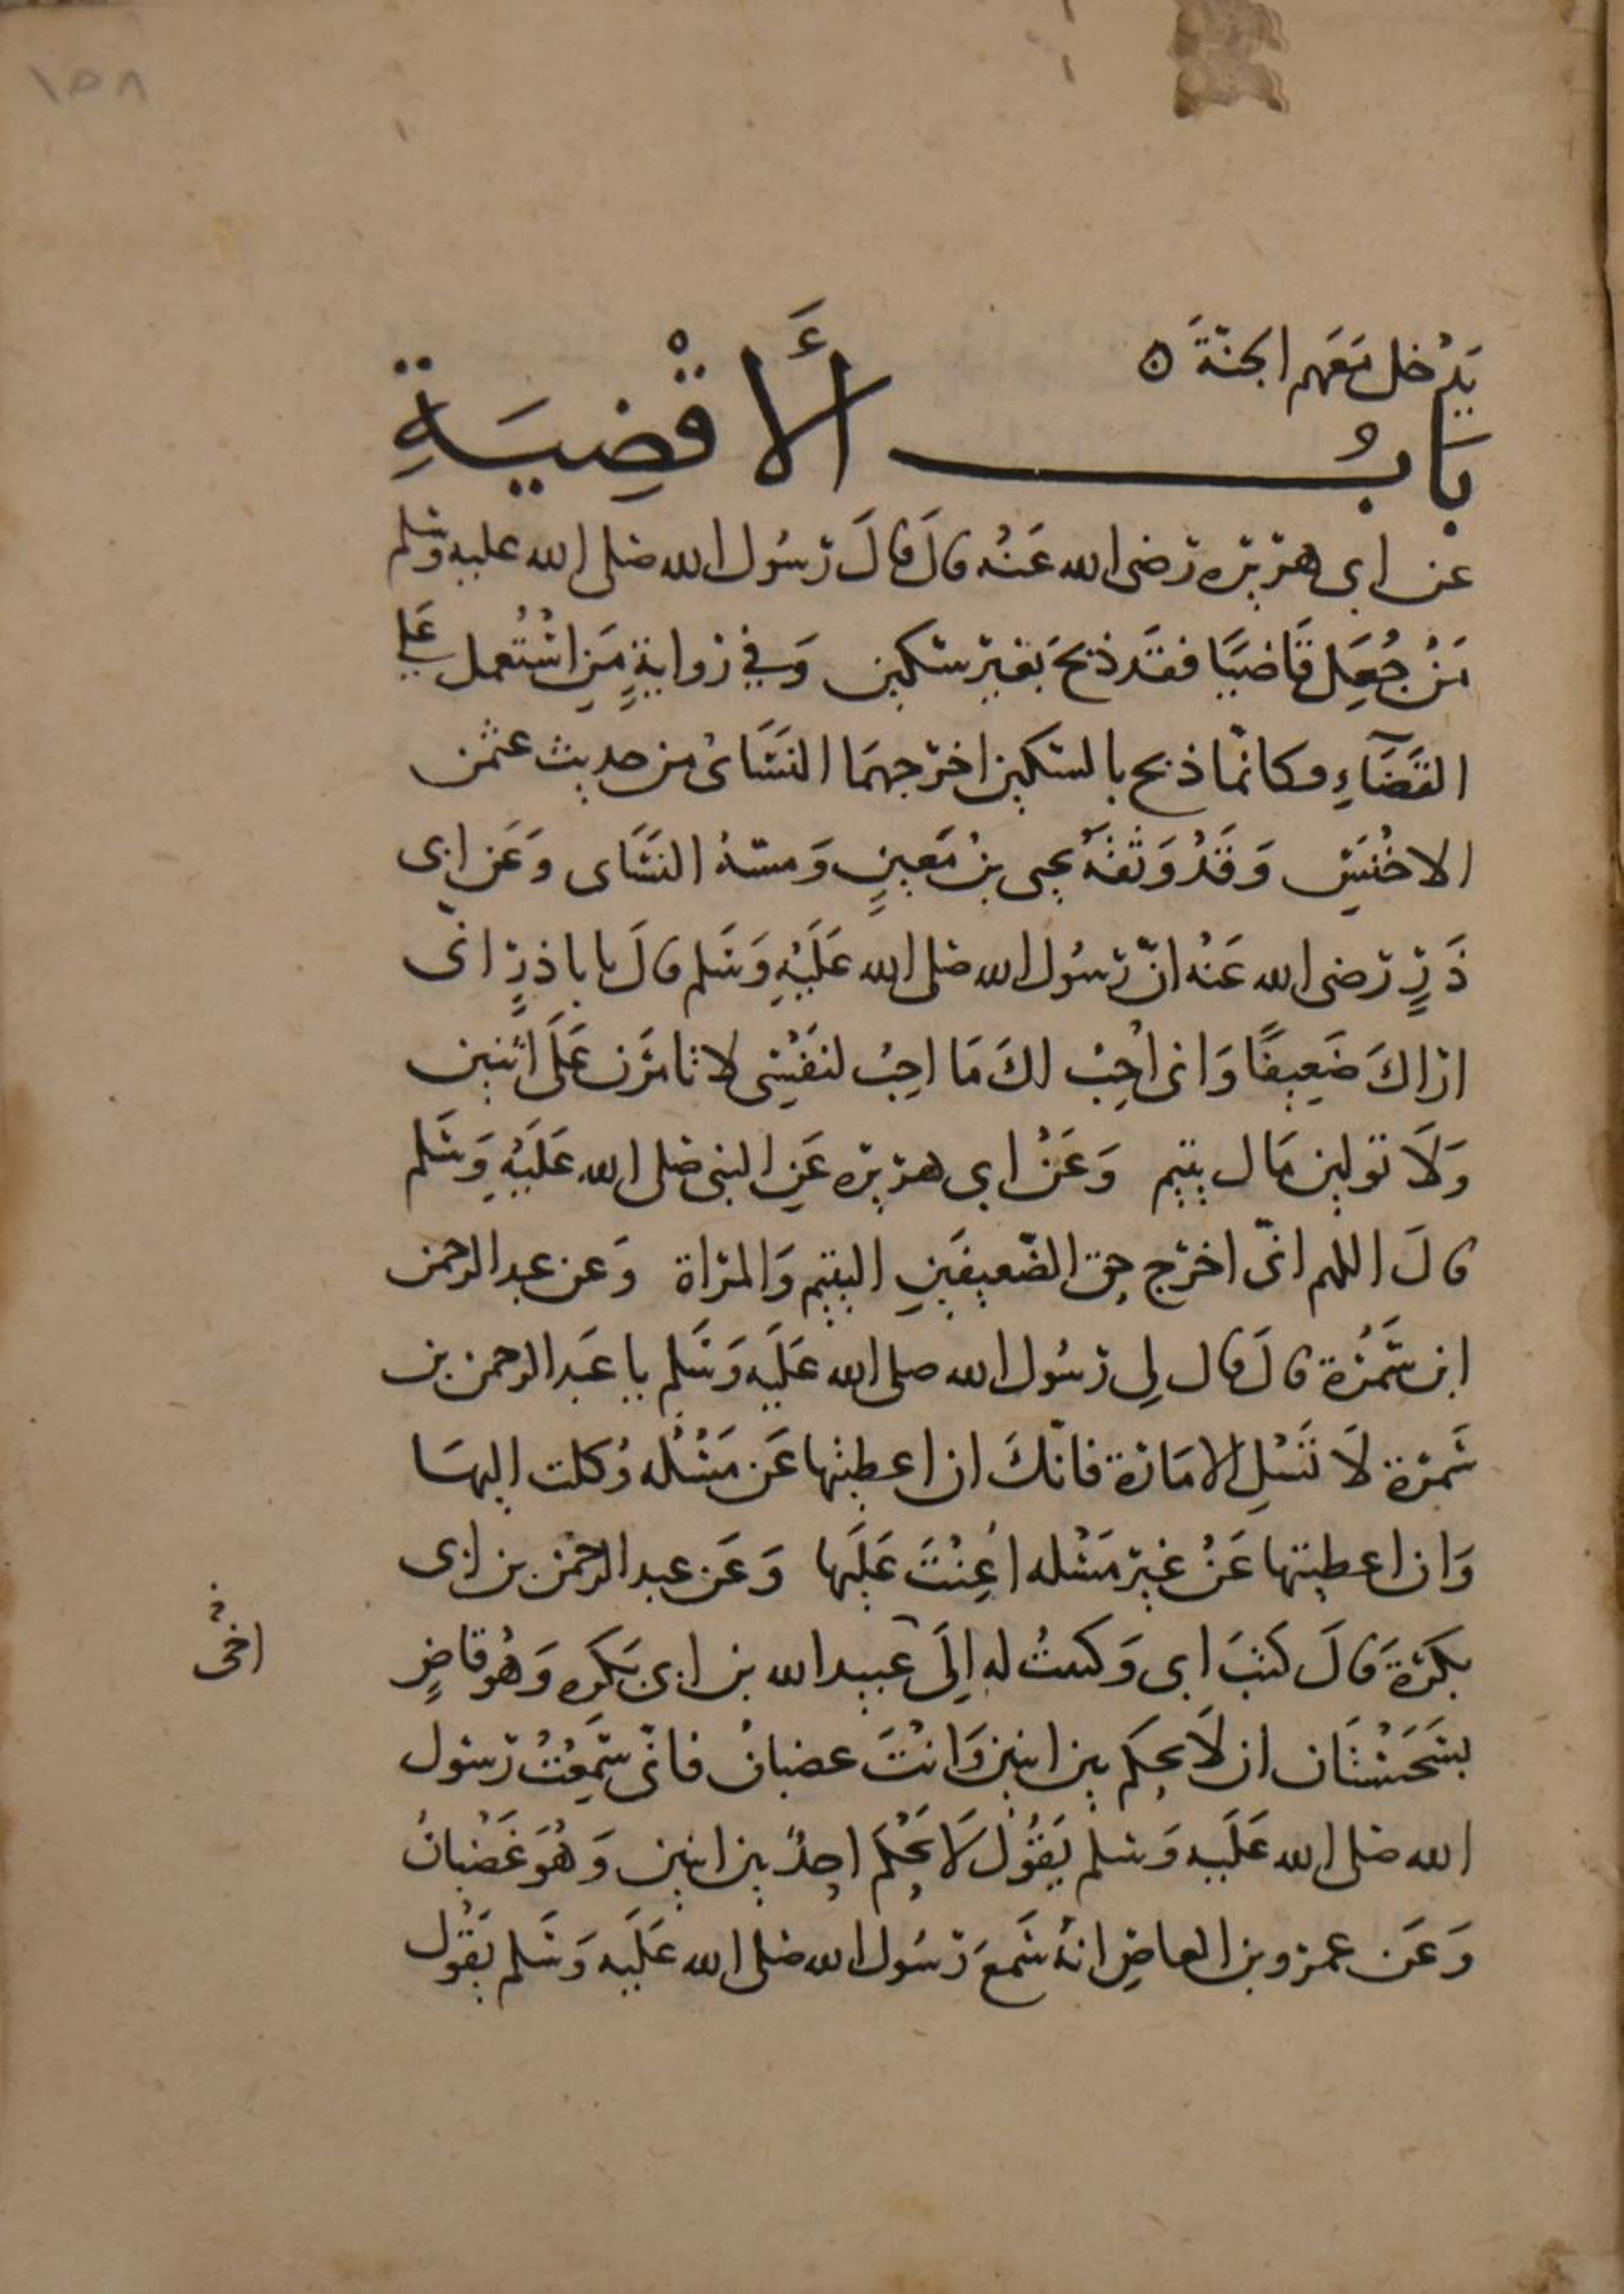 ١٥٨
يَدْخل مَعَهم الجنّةَ ه
بَابُ الأَقْضِيَةِ
عن ابي هريره رضى الله عَنْه قالَ قالَ رَسُول الله صلى الله عليه وسلم
مَنْ جُعِلَ قَاضيًا فقَد ذبحَ بَغير سكين وَفي روايةٍ مَنِ اسْتُعمل عَلى
القَضَآءِ فكانمّا ذبح بالسكين اخرجهمَا النسَاىُ من حديث عثمن
الاخْنَسِ وَقَدْ وَثقَهُ يحيى بنُ مَعِينٍ وَمسهُ النسَاى وَعَن ابى
ذَرٍّ رَضى الله عَنْه انّ رَسُول الله صلى الله عَلَيْهِ وَسَلم قالَ يا باذرٍّ انّى
اراكَ ضَعِيفًا وَانى اُحِبُ لكَ مَا احِبُ لنفَسِى لا تامرَن عَلَى اثنين
وَلَا تولين مَال يتيم وَعَنْ ابى هريره عَنِ النبى صلى الله عَلَيْهِ وَسَلم
قالَ اللهم انّى احرّج حق الضّعيفَينِ اليتيم وَالمراة وَعن عبد الرحمن
ابن سَمُرَة قالَ قال لِى رَسُول الله صلى الله عَلَيه وَسَلم يا عَبد الرحمن بن
سَمرَة لَا تَسْلِ الامَارَة فانّكَ ان اعطيتها عَن مَسْئله وُكلت اليهَا
وَان اعطيتها عَنْ غير مَسْله اُعِنْتَ عَلَيها وَعَن عبد الرحمن بن ابى
بكرَة قَالَ كتبَ ابى وَكتبتُ له اِلَى عبيد الله بن ابى بَكرَه وَهُو قاضٍ
اخى
بسَجَسْتَان ان لَا يحكم بين اثنين وَانْتَ غضبانُ فانّى سَمِعْتُ رَسول
الله صلى الله عَلَيه وَسلم يَقُولُ لَا يَحْكم احدٌ بين اثنين وَهُوَ غَضْبَانُ
وَعَن عمرو بن العاصِ انهُ سَمعَ رَسُول الله صلى الله عَلَيه وَسَلم يَقُول